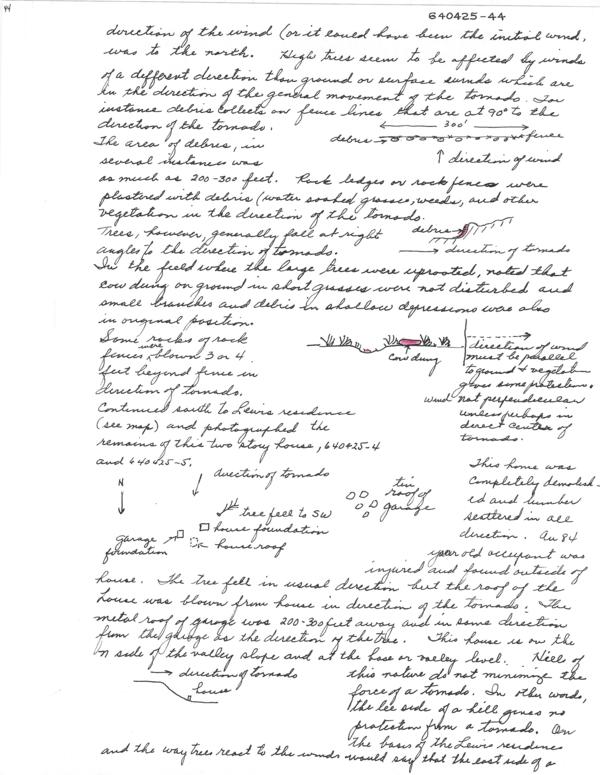 44
640425-44
direction of the wind (or it could have been the initial wind,
was to the north. High trees seem to be affected by winds
of a different direction than ground or surface winds which are
in the direction of the general movement of the tornado. For
instance debris collects on fence lines that are at 90° to the
direction of the tornado.
300'
debris
fence
direction of wind
The area of debris, in
several instances was
as much as 200-300 feet. Rock ledges or rock fences were
plastered with debris (water soaked grasses, weeds, and other
vegetation in the direction of the tornado.
Trees, however, generally fall at right
angles to the direction of tornado.
debris
direction of tornado
In the field where the large trees were uprooted, noted that
cow dung on ground in short grasses were not disturbed and
small branches and debris in shallow depressions was also
in original position.
Some rocks of rock
fences were blown 3 or 4
feet beyond fence in
direction of tornado.
cow dung
direction of wind
must be parallel
to ground & vegetation
gives some protection.
wind not perpendicular
unless perhaps in
direct center of
tornado.
Continued south to Lewis residence
(see map) and photographed the
remains of this two story house, 640425-4
and 640425-5.
N
direction of tornado
tree fell to SW
house foundation
house roof
garage
foundation
tin
roof of
garage
This home was
completely demolish-
ed and lumber
scattered in all
direction. An 84
year old occupant was
injured and found outside of
house. The tree fell in usual direction but the roof of the
house was blown from house in direction of the tornado. The
metal roof of garage was 200-300 feet away and in same direction
from the garage as the direction of the tree. This house is on the
N side of the valley slope and at the base or valley level. Hills of
direction of tornado
house
this nature do not minimize the
force of a tornado. In other words,
the lee side of a hill gives no
protection from a tornado. On
the basis of the Lewis residence
and the way trees react to the winds would say that the east side of a